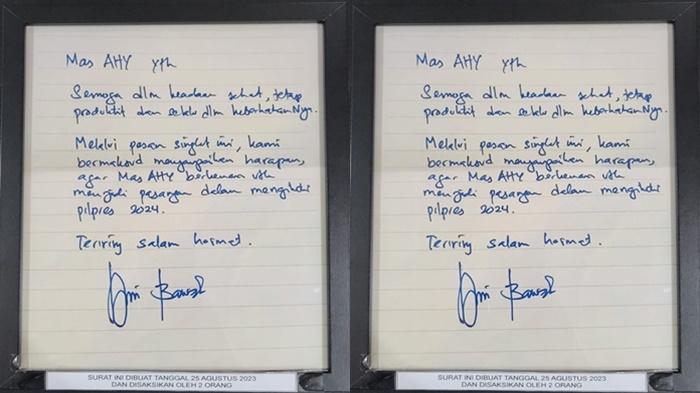 Mas AHY yth
Semoga dlm keadaan sehat, tetap
produktif dan selalu dlm keberkahanNya.
Melalui pesan singkat ini, kami
bermaksud menyampaikan harapan,
agar Mas AHY berkenan utk
menjadi pasangan dalam mengikuti
pilpres 2024.
Teriring salam hormat.
Anies Baswedan
SURAT INI DIBUAT TANGGAL 25 AGUSTUS 2023
DAN DISAKSIKAN OLEH 2 ORANG
Mas AHY yth
Semoga dlm keadaan sehat, tetap
produktif dan selalu dlm keberkahanNya.
Melalui pesan singkat ini, kami
bermaksud menyampaikan harapan,
agar Mas AHY berkenan utk
menjadi pasangan dalam mengikuti
pilpres 2024.
Teriring salam hormat.
Anies Baswedan
SURAT INI DIBUAT TANGGAL 25 AGUSTUS 2023
DAN DISAKSIKAN OLEH 2 ORANG